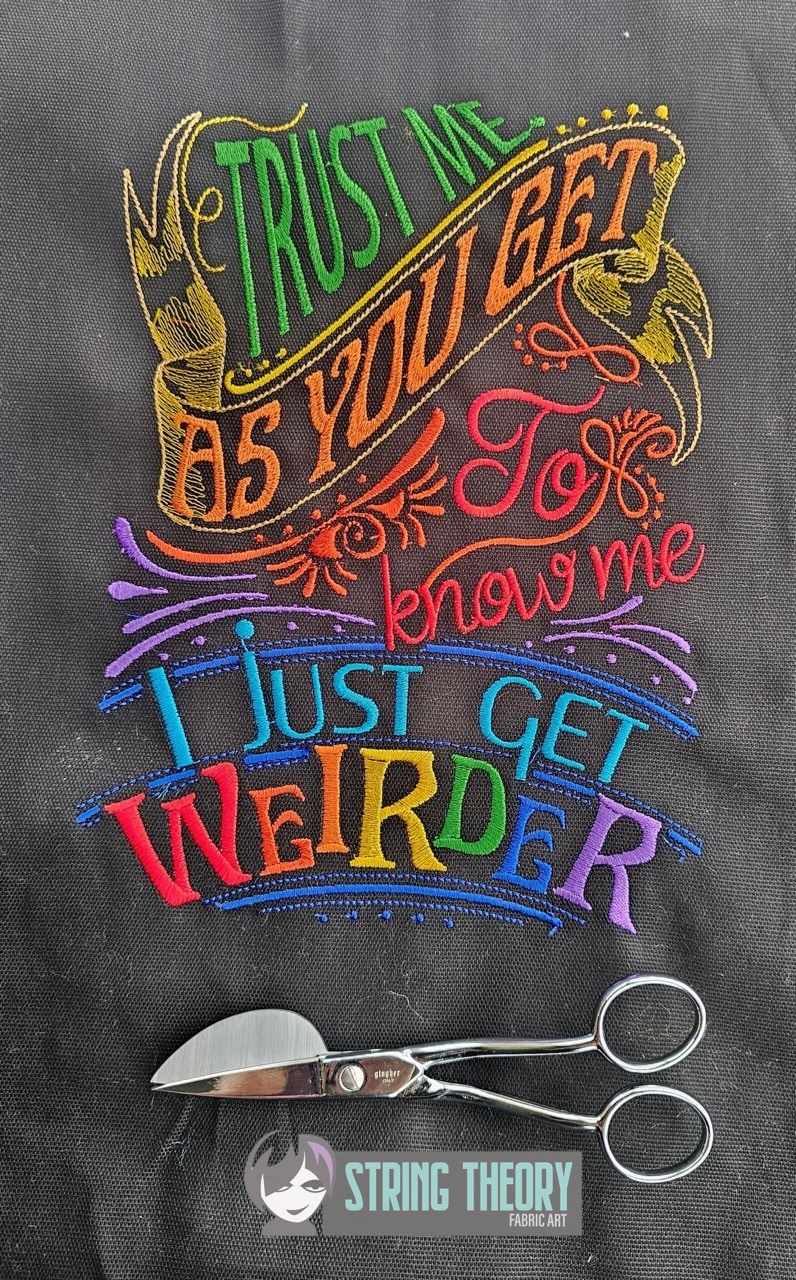 TRUST ME.
AS YOU GET
To
know me
I JUST GET
WEIRDER
gingher
STRING THEORY
FABRIC ART